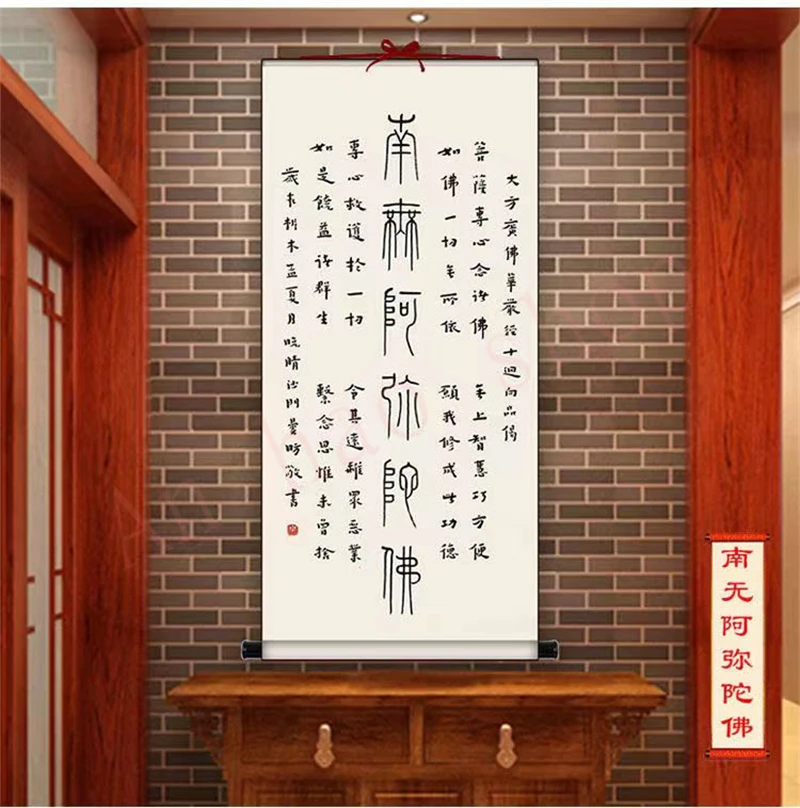 大方廣佛華嚴經十迴向品偈
菩薩專心念諸佛 无上智慧巧方便
如佛一切无所依 願我修成此功德
南無阿弥陀佛
專心救護於一切 令其遠離眾惡業
如是饒益諸群生 繫念思惟未曾捨
歲在析木孟夏月晚晴沙門曇昉敬書
南无阿弥陀佛